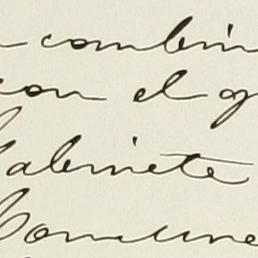 combin
con el g
Gabinete
Comune